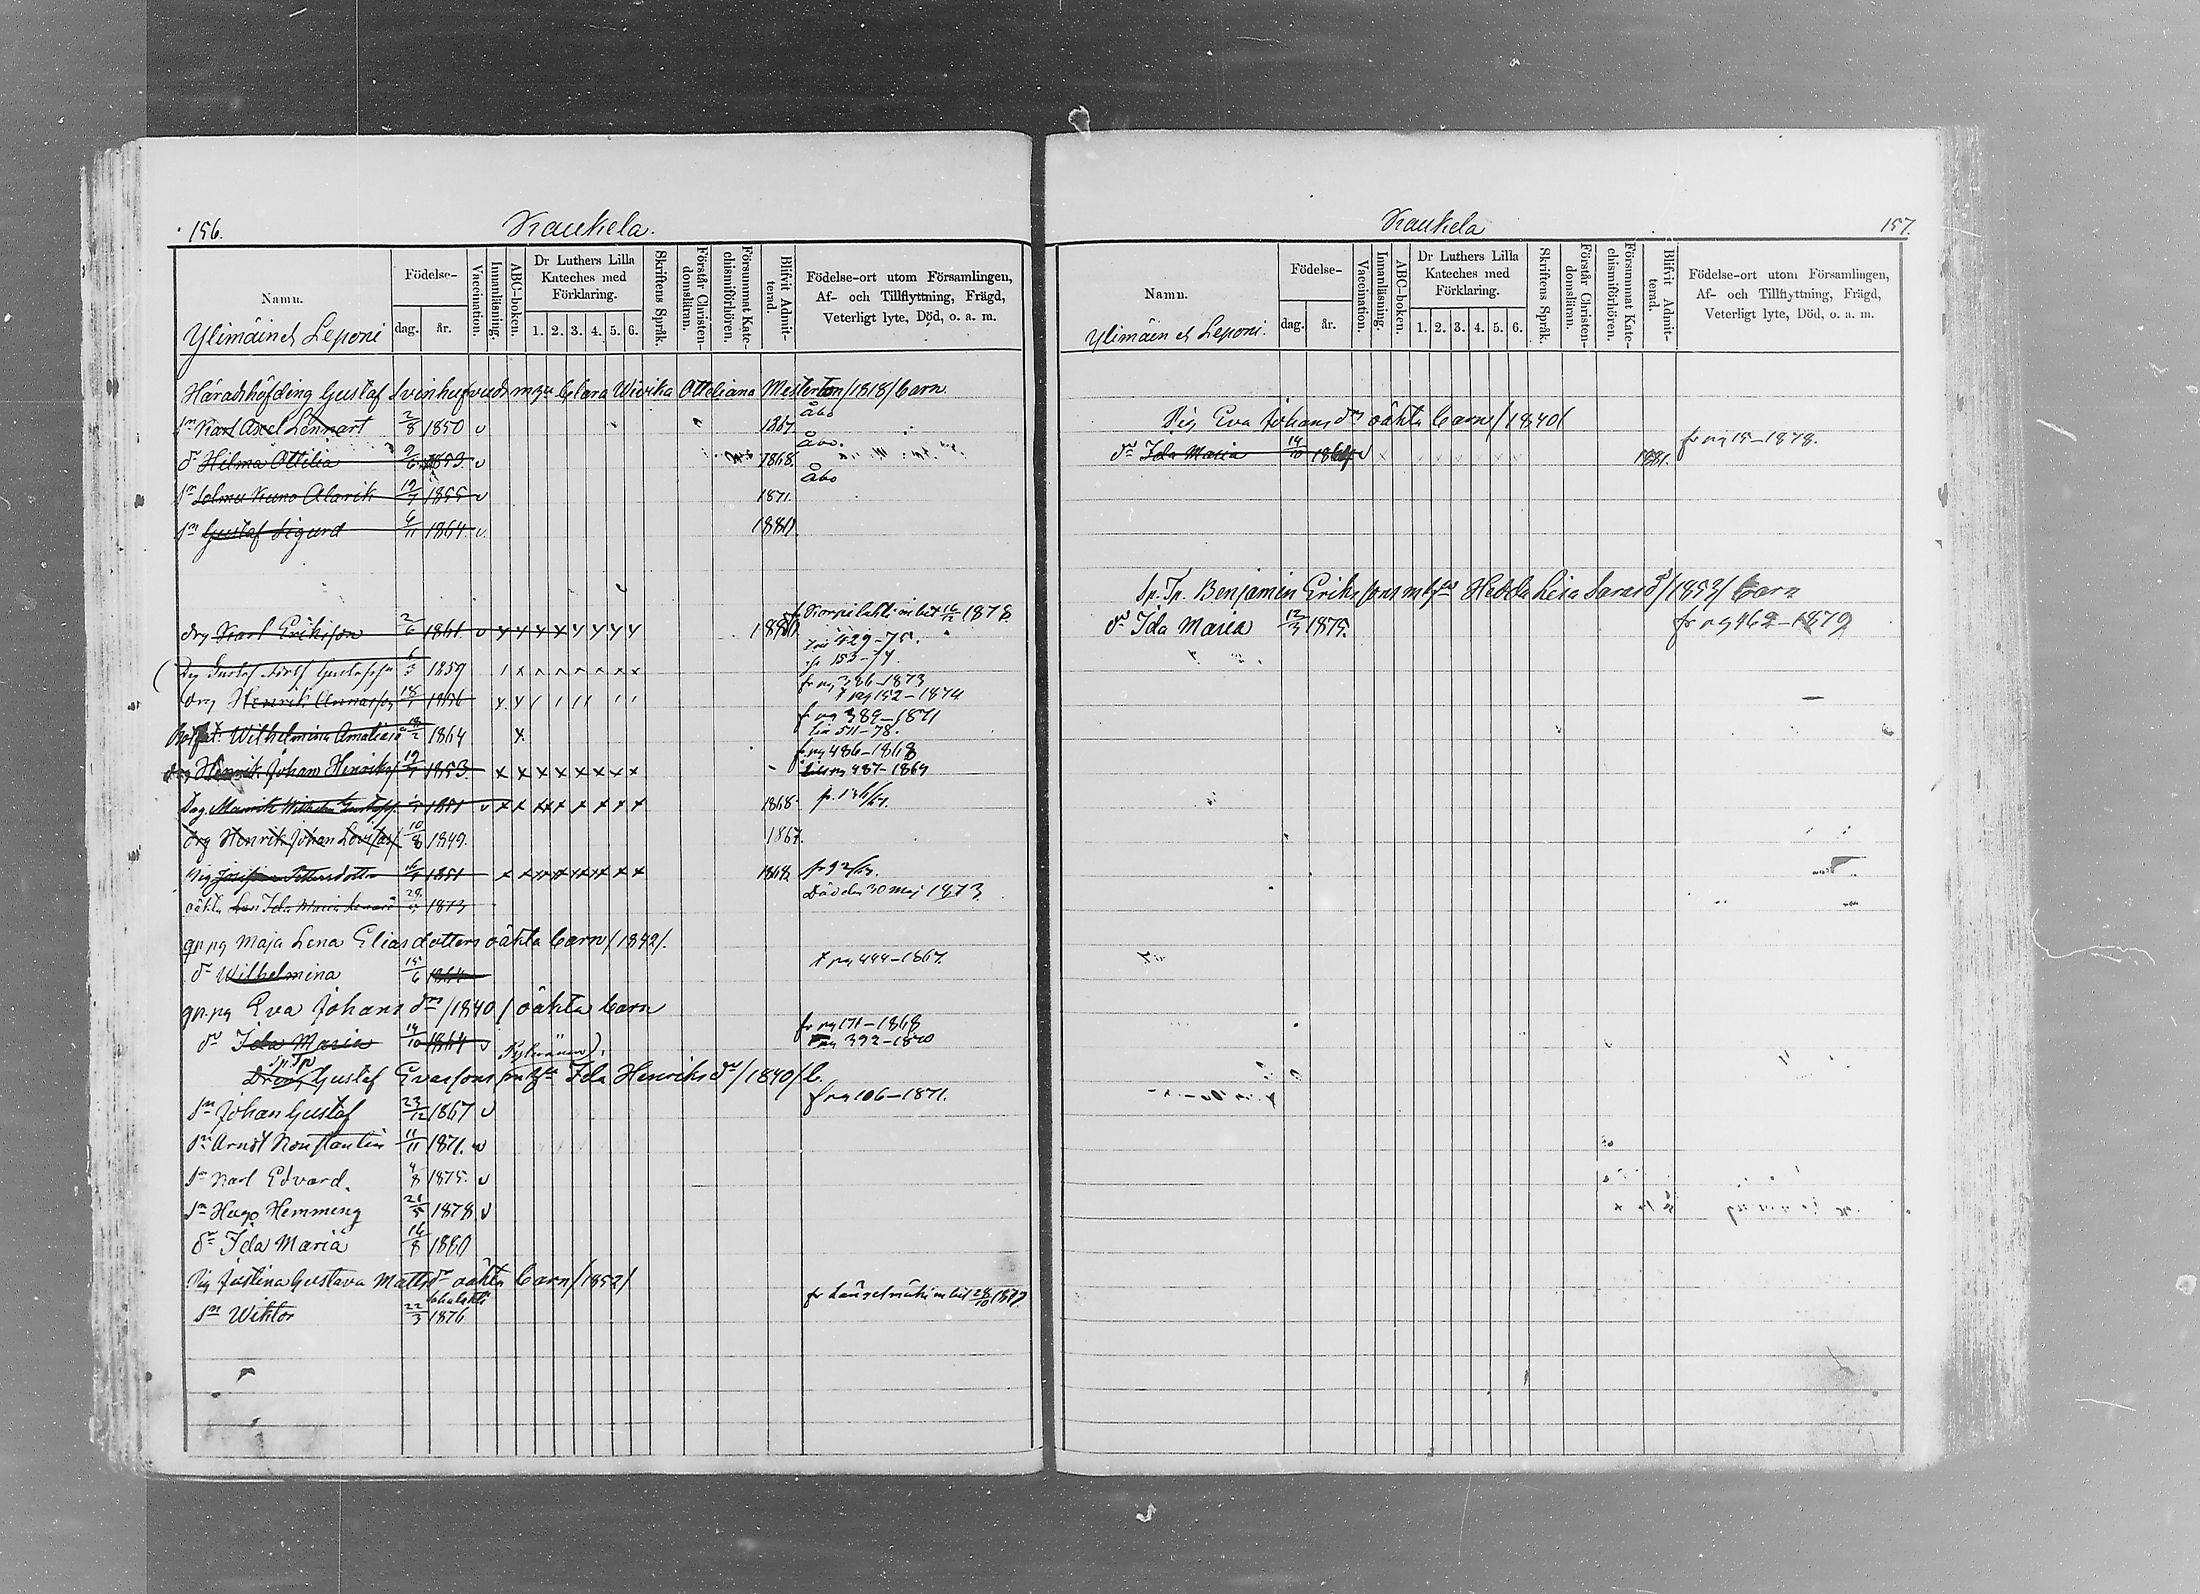 156.
Kaukela.
Namn.
Ylimäin et Leponi
Födelse-
dag.
år.
Vaccination.
Innanläsning.
ABC-boken.
Dr Luthers Lilla
Kateches med
Förklaring.
1. 2. 3. 4. 5. 6.
Skriftens Språk.
Förstår Christen-
domsläran.
Försummat Kate-
chismiförhören.
Blifvit Admit-
terad.
Födelse-ort utom Församlingen,
Af- och Tillflyttning, Frägd,
Veterligt lyte, Död, o. a. m.
Häradshöfding Gustaf Svinhufvuds m Clara Wivika Otteliana Mesterton /1818/ barn.
Sn Karl Axel Lennart 2/8 1850 v 1867 Åbo
dr Hilma Ottilia 2/6 1853 v 1868 Åbo.
Sn Kuno Alarik 19/7 1855 v 1871. Åbo
Sn Gustaf Sigurd 6/11 1864 v 1880
drg Karl Eriksson 2/6 1861 v x x x x x x x x 1880 fr Korpilahti m bet 16/12 1878
429-75.
Drg Gustaf Adolf Gustafsson 1859 153-74.
drg Henrik Annasson 18/7 1856 fr pg 386-1873
t pg 152-1874
Wilhelmina Amalia 1864 x fr pg 389-1871
571-78.
drg Henrik Johan Henriksson 19/7 1853 x x x x x x x x fr pg 486-1868
till pg 487-1869
Drg Wilhelm Gustafsson 1851 v x x x x x x x x 1868 fr. 136/67.
drg Henrik Johan 10/8 1849. 1867.
Pig Josefina Pettersdotter 1851 x x x x x x x x 1868 fr 92/
oäkta Ida Maria 29/5 1873 Död den 30 maj 1873
qp.pg Maja Lena Eliasdotters oäkta barn /1842/.
dr Wilhelmina 15/6 1864 t pg 444-1867.
qp.pg Eva Johans dr /1840/ oäkta barn
dr Ida Maria 14/10 1864 v fr pg 171-1868
pg 392-1870
Sp. Tp
Dreng Gustaf Evasson m Ida Henriks dr /1840/ b.
Sn Johan Gustaf 23/12 1867 v fr pg 106-1871.
Sn Arndt Konstantin 11/11 1871. v
Sn Karl Edvard. 4/8 1875. v
Sn Hugo Hemming 21/5 1878 v
dr Ida Maria 16/8 1880
Pig Justina Gustava Matts dr oäkta barn /1852/
Sn Wiktor 22/3 1876 fr m bet 28/10
157.
Kaukela
Namn.
Ylimäin et Leponi.
Födelse-
dag.
år.
Vaccination.
Innanläsning.
ABC-boken.
Dr Luthers Lilla
Kateches med
Förklaring.
1. 2. 3. 4. 5. 6.
Skriftens Språk.
Förstår Christen-
domsläran.
Försummat Kate-
chismiförhören.
Blifvit Admit-
terad.
Födelse-ort utom Församlingen,
Af- och Tillflyttning, Frägd,
Veterligt lyte, Död, o. a. m.
Pig Eva Johans dr oäkta barn /1840/
dr Ida Maria 14/10 1864 v 1881. fr pg 15-1878.
Sp. Tp. Benjamin Eriksson m Hedda Lisa /1853/ barn
dr Ida Maria 12/3 1875. fr pg 462-1879